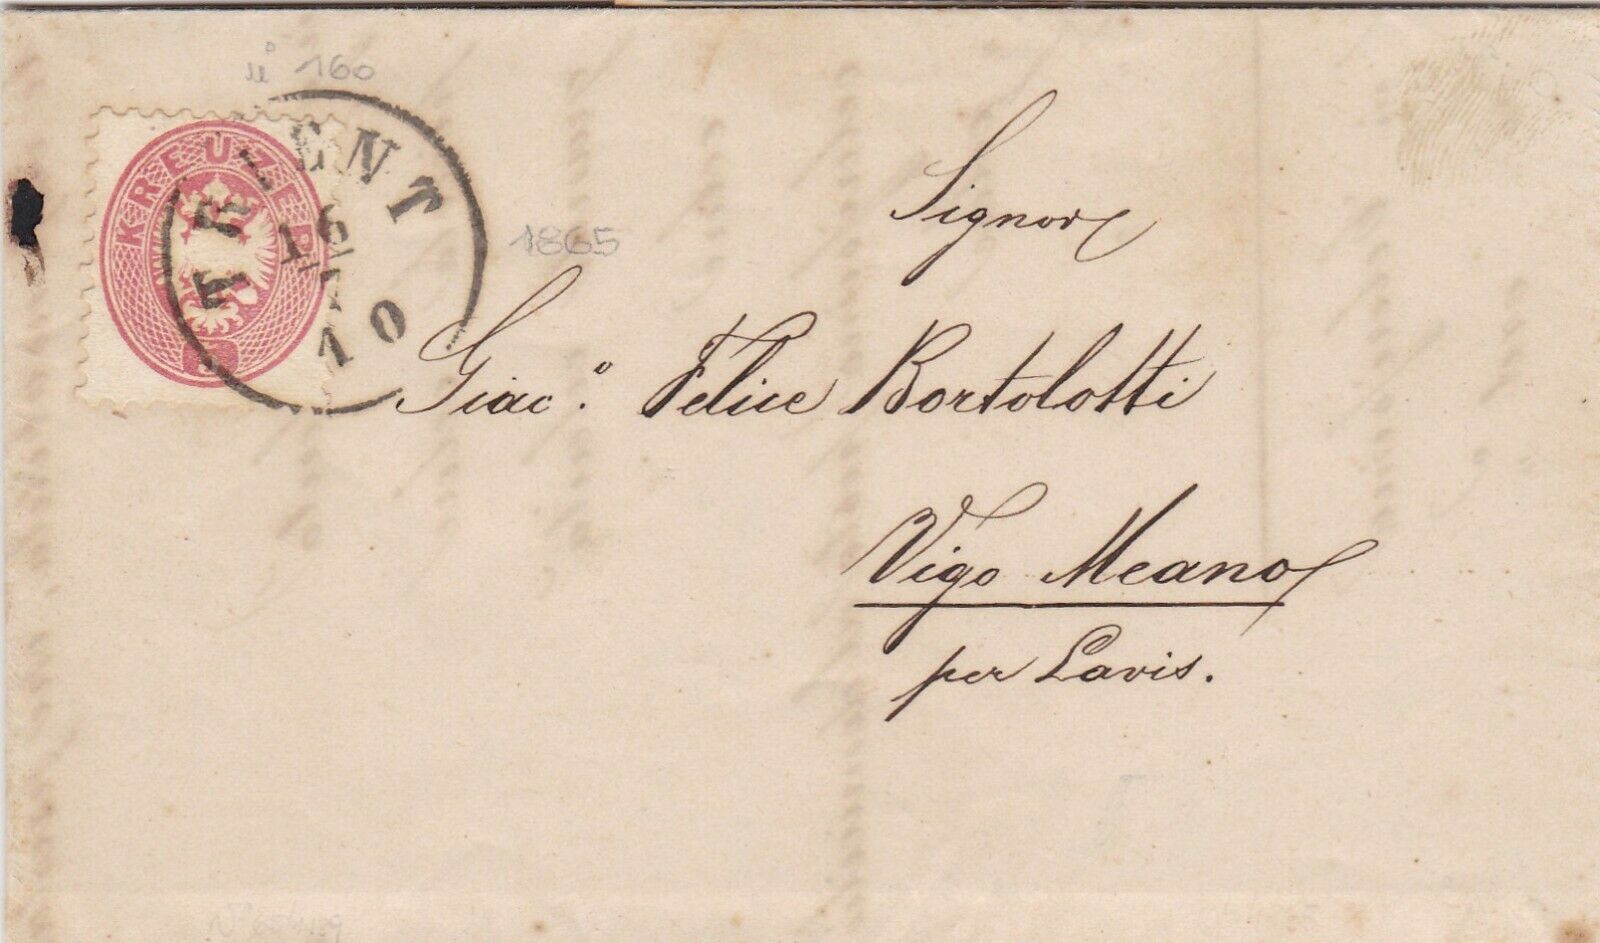 n° 160
KREUZER
5
TRIENT
16/7
10
1865
Signore
Giac.° Felice Bortolotti
Vigo Meano
per Lavis.